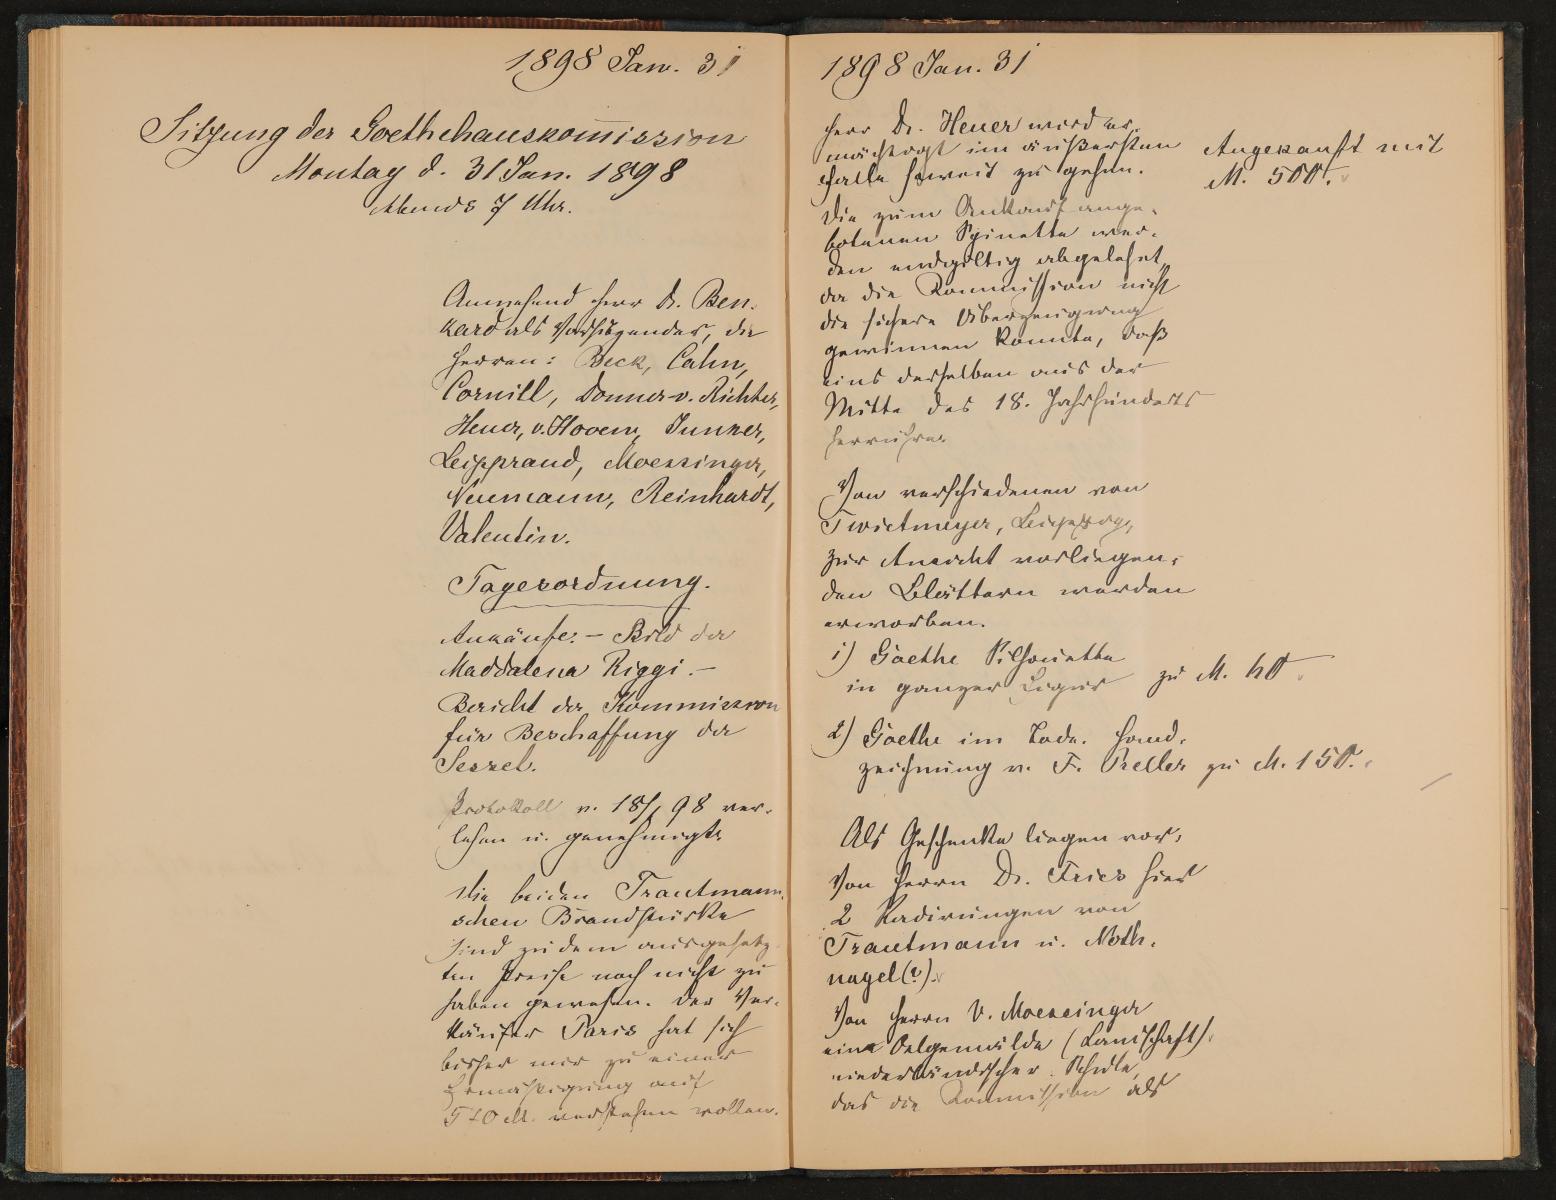 1898 Jan. 31
Sitzung der Goethehauskom̅ission
Montag d. 31 Jan. 1898
Abends 7 Uhr.
Anwesend Herr Dr. Ben-
kard als Vorsitzender, die
Herren: Beck, Cahn,
Cornill, Donner-v. Richter,
Heuer, v. Hoven, Junker,
Leipprand, Moessinger,
Neumann, Reinhardt,
Valentin.
Tagesordnung.
Ankäufe. – Bild der
Maddalena Riggi. –
Bericht der Kommission
für Beschaffung der
Sessel.
Protokoll v. 18/1 98 ver-
lesen u. genehmigt.
Die beiden Trautmann-
schen Brandstücke
sind zu dem ausgesetz-
ten Preise noch nicht zu
haben gewesen. Der Ver-
käufer Paris hat sich
bisher nur zu einer
Ermässigung auf
540 M. verstehen wollen.
1898 Jan. 31
Herr Dr. Heuer wird er-
mächtigt im äußersten
Falle soweit zu gehen.
Angekauft mit
M. 500.
Die zum Ankauf ange-
botenen Spinette wer-
den endgültig abgelehnt,
da die Kommission nicht
die sichere Überzeugung
gewinnen konnte, daß
eins derselben aus der
Mitte des 18. Jahrhunderts
herrühre.
Von verschiedenen von
Twietmeyer, Leipzig,
zur Ansicht vorliegen-
den Blättern werden
erworben.
1) Goethe Silhouette
in ganzer Figur zu M. 60
2) Goethe im Tode. Hand-
zeichnung v. F. Preller zu M. 150.
Als Geschenke liegen vor:
Von Herrn Dr. Fries hier
2 Radirungen von
Trautmann u. Noth-
nagel (?).
Von Herrn V. Moessinger
eine Oelgemälde (Landschaft)
niederländischer Schule,
das die Kommission als